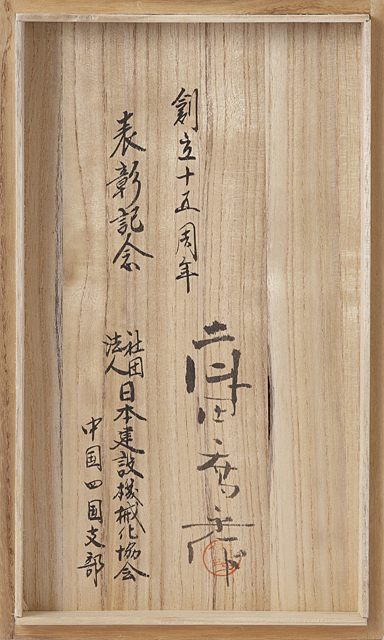 創立十五周年
表彰記念
社団法人日本建設機械化協会
中国四国支部